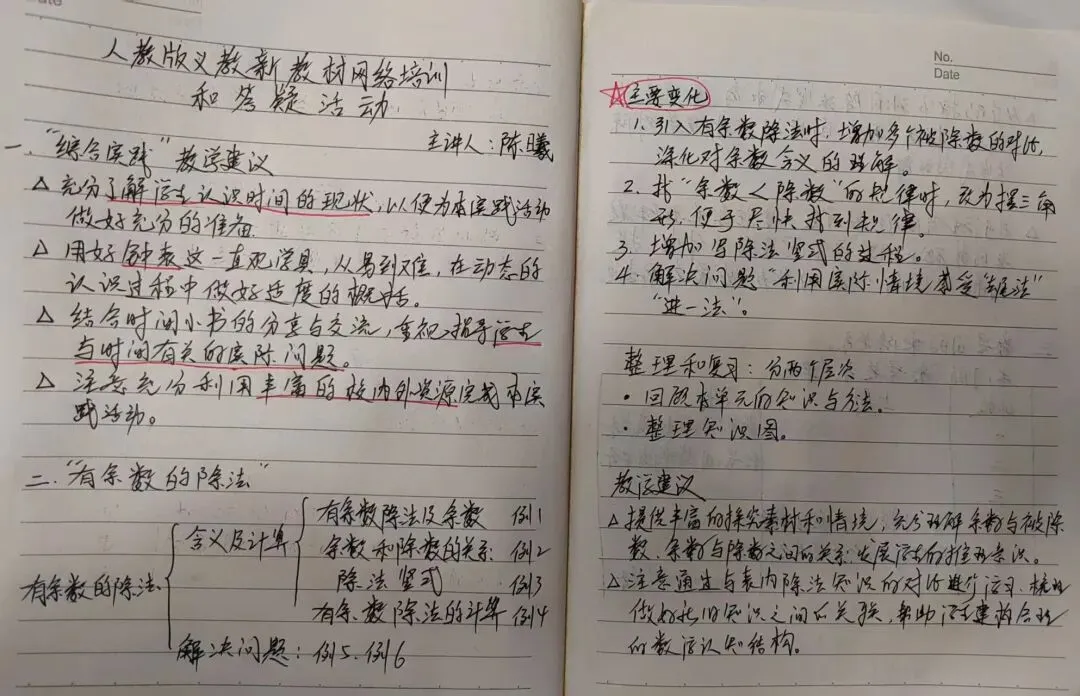 人教版义教新教材网络培训
和答疑活动
主讲人：陈曦
一、“综合实践”教学建议
△ 充分了解学生认识时间的现状，以便为本实践活动
做好充分的准备
△ 用好钟表这一直观学具，从易到难，在动态的
认识过程中做好适度的概括。
△ 结合时间小书的分享与交流，重视指导学生
与时间有关的实际问题。
△ 注意充分利用丰富的校内外资源完成本实
践活动。
二.“有余数的除法”
有余数除法及余数 例1
含义及计算
余数和除数的关系 例2
除法竖式 例3
有余数的除法
有余数除法的计算 例4
解决问题：例5、例6
No.
Date
☆主要变化
1. 引入有余数除法时，增加多个被除数的对比，
深化对余数含义的理解。
2. 找“余数＜除数”的规律时，改为摆三角
形，便于尽快找到规律。
3. 增加写除法竖式的过程。
4. 解决问题“利用实际情境感受“去尾法”
“进一法”。
整理和复习：分两个层次
· 回顾本单元的知识与方法。
· 整理知识图。
教学建议
△ 提供丰富的探究素材和情境，充分理解余数与被除
数、余数与除数之间的关系，发展学生的推理意识。
△ 注意通过与表内除法知识的对比进行学习，
做好新旧知识之间的关联，帮助学生建构合理
的数学认知结构。